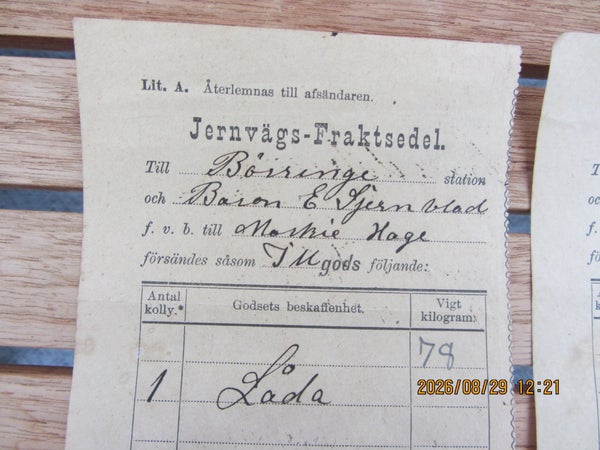 Lit. A. Återlemnas till afsändaren.
Jernvägs-Fraktsedel.
Till Börringe station
och Baron E Stjernblad
f. v. b. till Hage
försändes såsom Ill gods följande:
Antal kolly.* Godsets beskaffenhet. Vigt kilogram.
78
1 Låda
2026/08/29 12:21